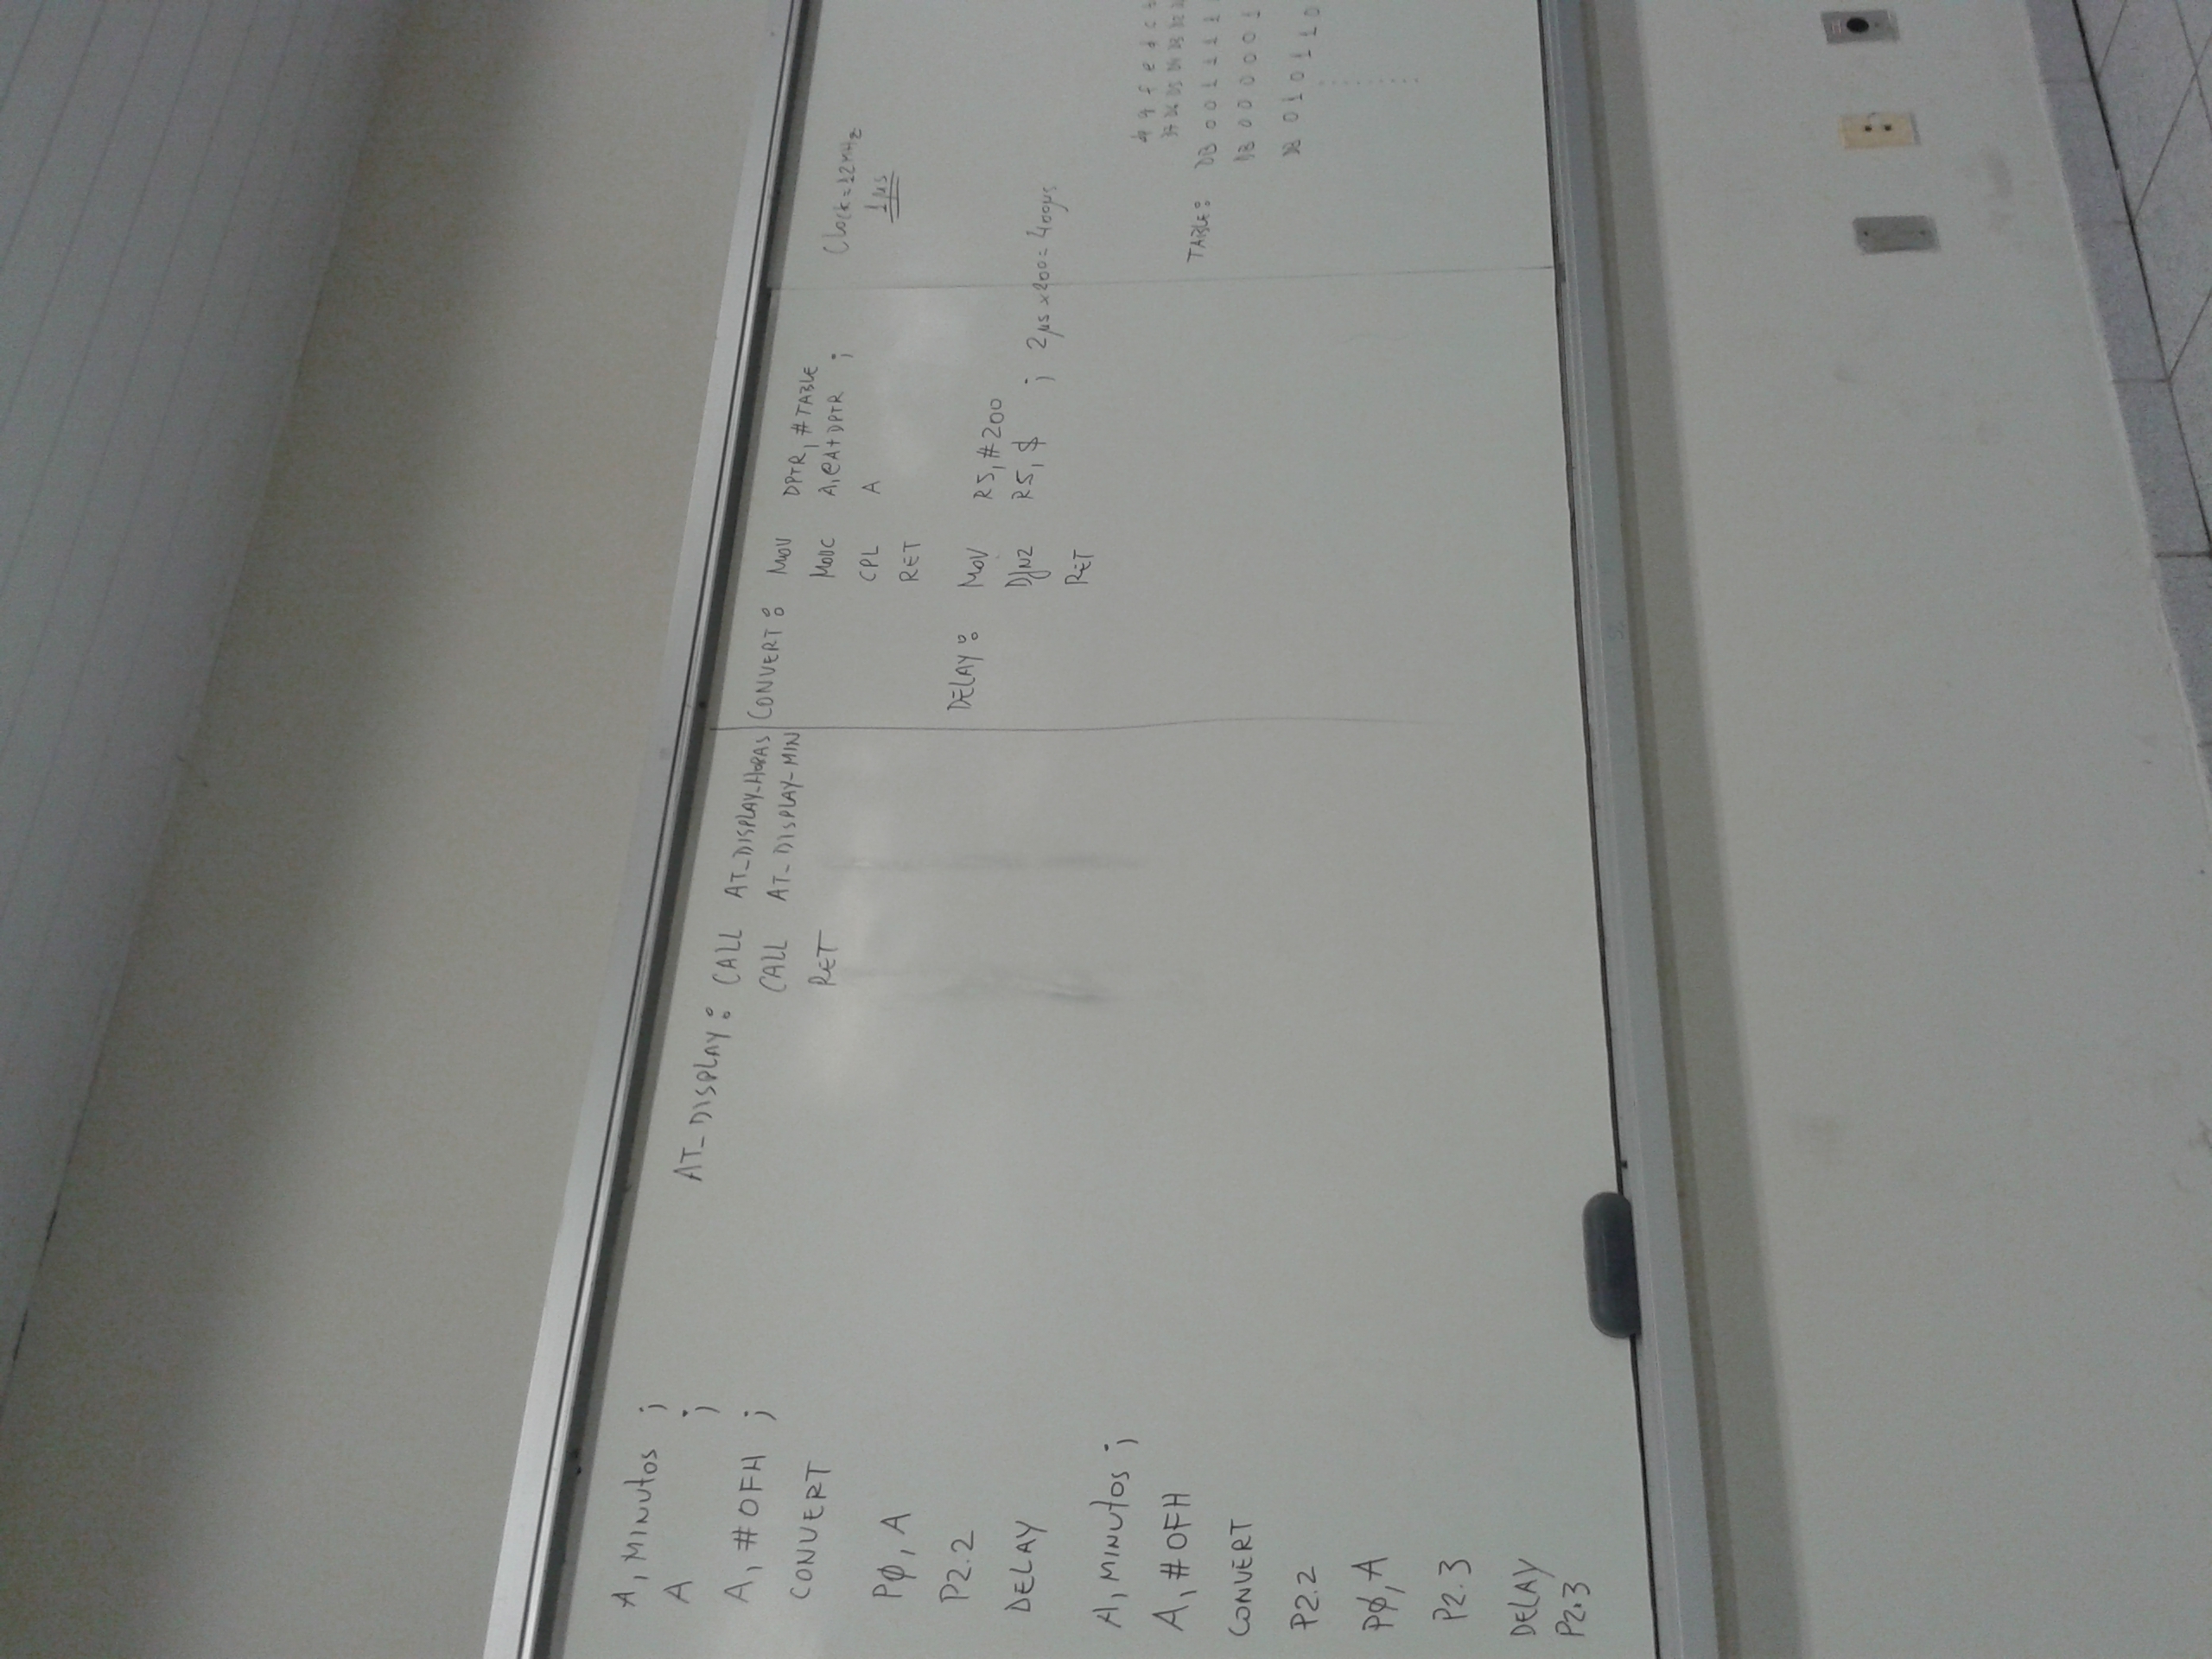 A, MINUTOS ;
A ;
A, #0FH ;
CONVERT
PØ, A
P2.2
DELAY
A, MINUTOS ;
A, #0FH
CONVERT
P2.2
PØ, A
P2.3
DELAY
P2.3
AT_DISPLAY: CALL AT_DISPLAY_HORAS
CALL AT_DISPLAY_MIN
RET
CONVERT: MOV DPTR, #TABLE
MOVC A, @A+DPTR ;
CPL A
RET
DELAY: MOV R5, #200
DJNZ R5, $ ; 2µs x 200 = 400µs
RET
Clock = 12MHz
1µs
dp g f e d c b
D7 D6 D5 D4 D3 D2
TABLE: DB 0 0 1 1 1 1
DB 0 0 0 0 0 1
DB 0 1 0 1 1 0